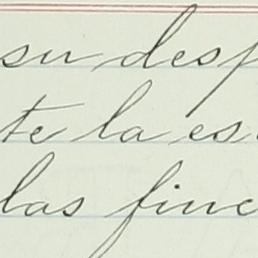 su desp
te la es
las finc